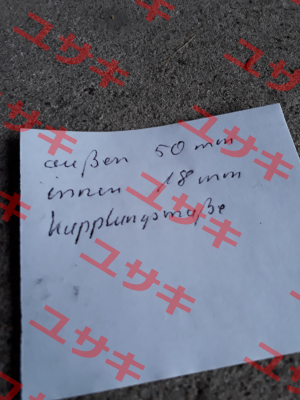 außen 50 mm
innen 18 mm
Kupplungsmaße
ユサキ
ユサキ
ユサキ
ユサキ
ユサキ
ユサキ
ユサキ
ユサキ